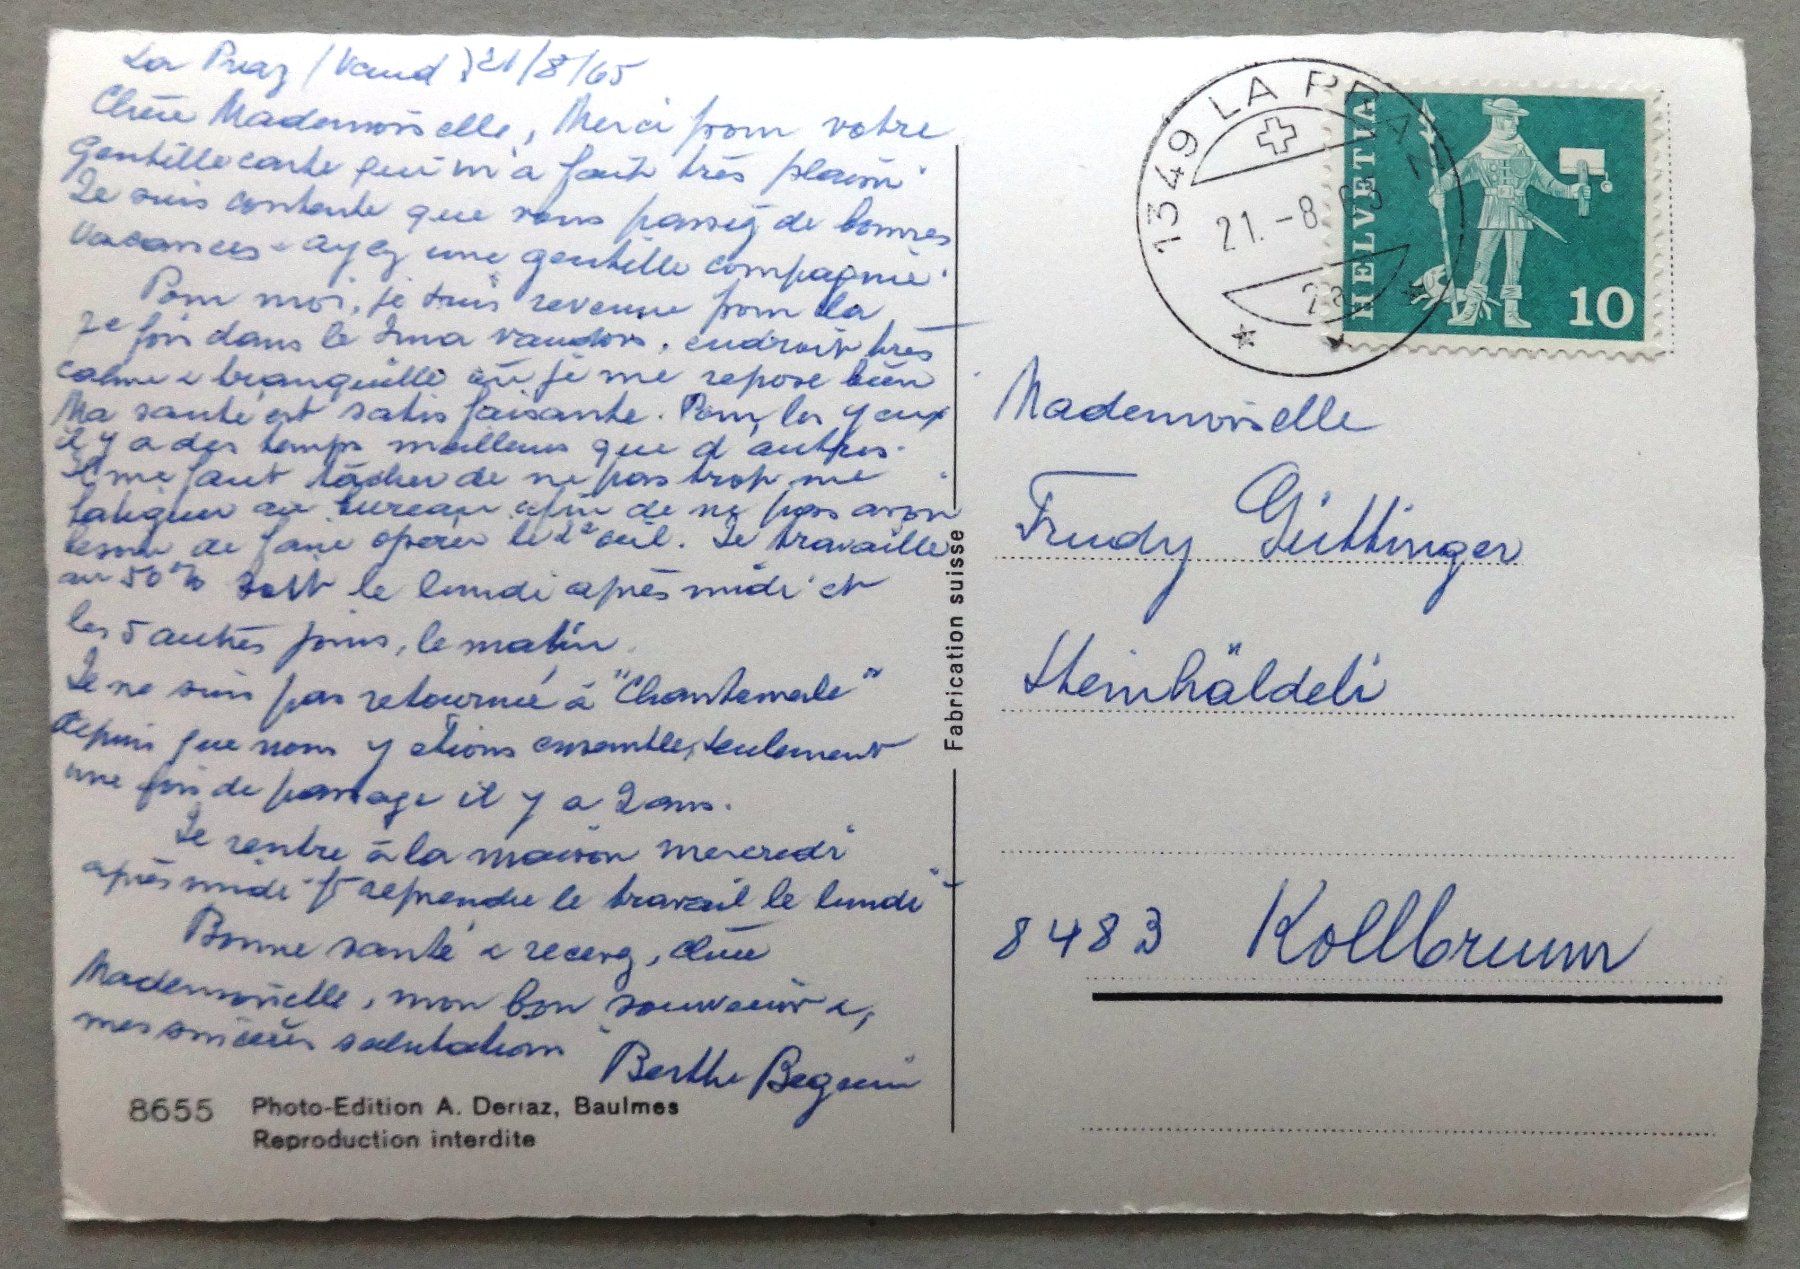 La Praz (Vaud) 21/8/65
Chère Mademoiselle, Merci pour votre
gentille carte qui m'a fait très plaisir.
Je suis contente que vous passez de bonnes
vacances & ayez une gentille compagnie.
Pour moi, je suis revenue pour la
2e fois dans le Jura vaudois, endroit très
calme & tranquille où je me repose bien
Ma santé est satisfaisante. Pour les yeux
il y a des temps meilleurs que d'autres.
Il me faut tâcher de ne pas trop me
fatiguer au bureau afin de ne pas avoir
besoin de faire opérer le 2e œil. Je travaille
au 50% soit le lundi après midi et
les 5 autres jours, le matin.
Je ne suis pas retournée à "Chantemerle"
depuis que nous y étions ensemble, seulement
une fois de passage il y a 2 ans.
Je rentre à la maison mercredi
après midi & reprendre le travail le lundi
Bonne santé & recevez, chère
Mademoiselle, mon bon souvenir &
mes sincères salutations
Berthe Beguin
8655 Photo-Edition A. Deriaz, Baulmes
Reproduction interdite
Fabrication suisse
1349 LA PRAZ
21.-8.65
HELVETIA
10
Mademoiselle
Trudy Güttinger
Steinhäldeli
8483 Kollbrunn